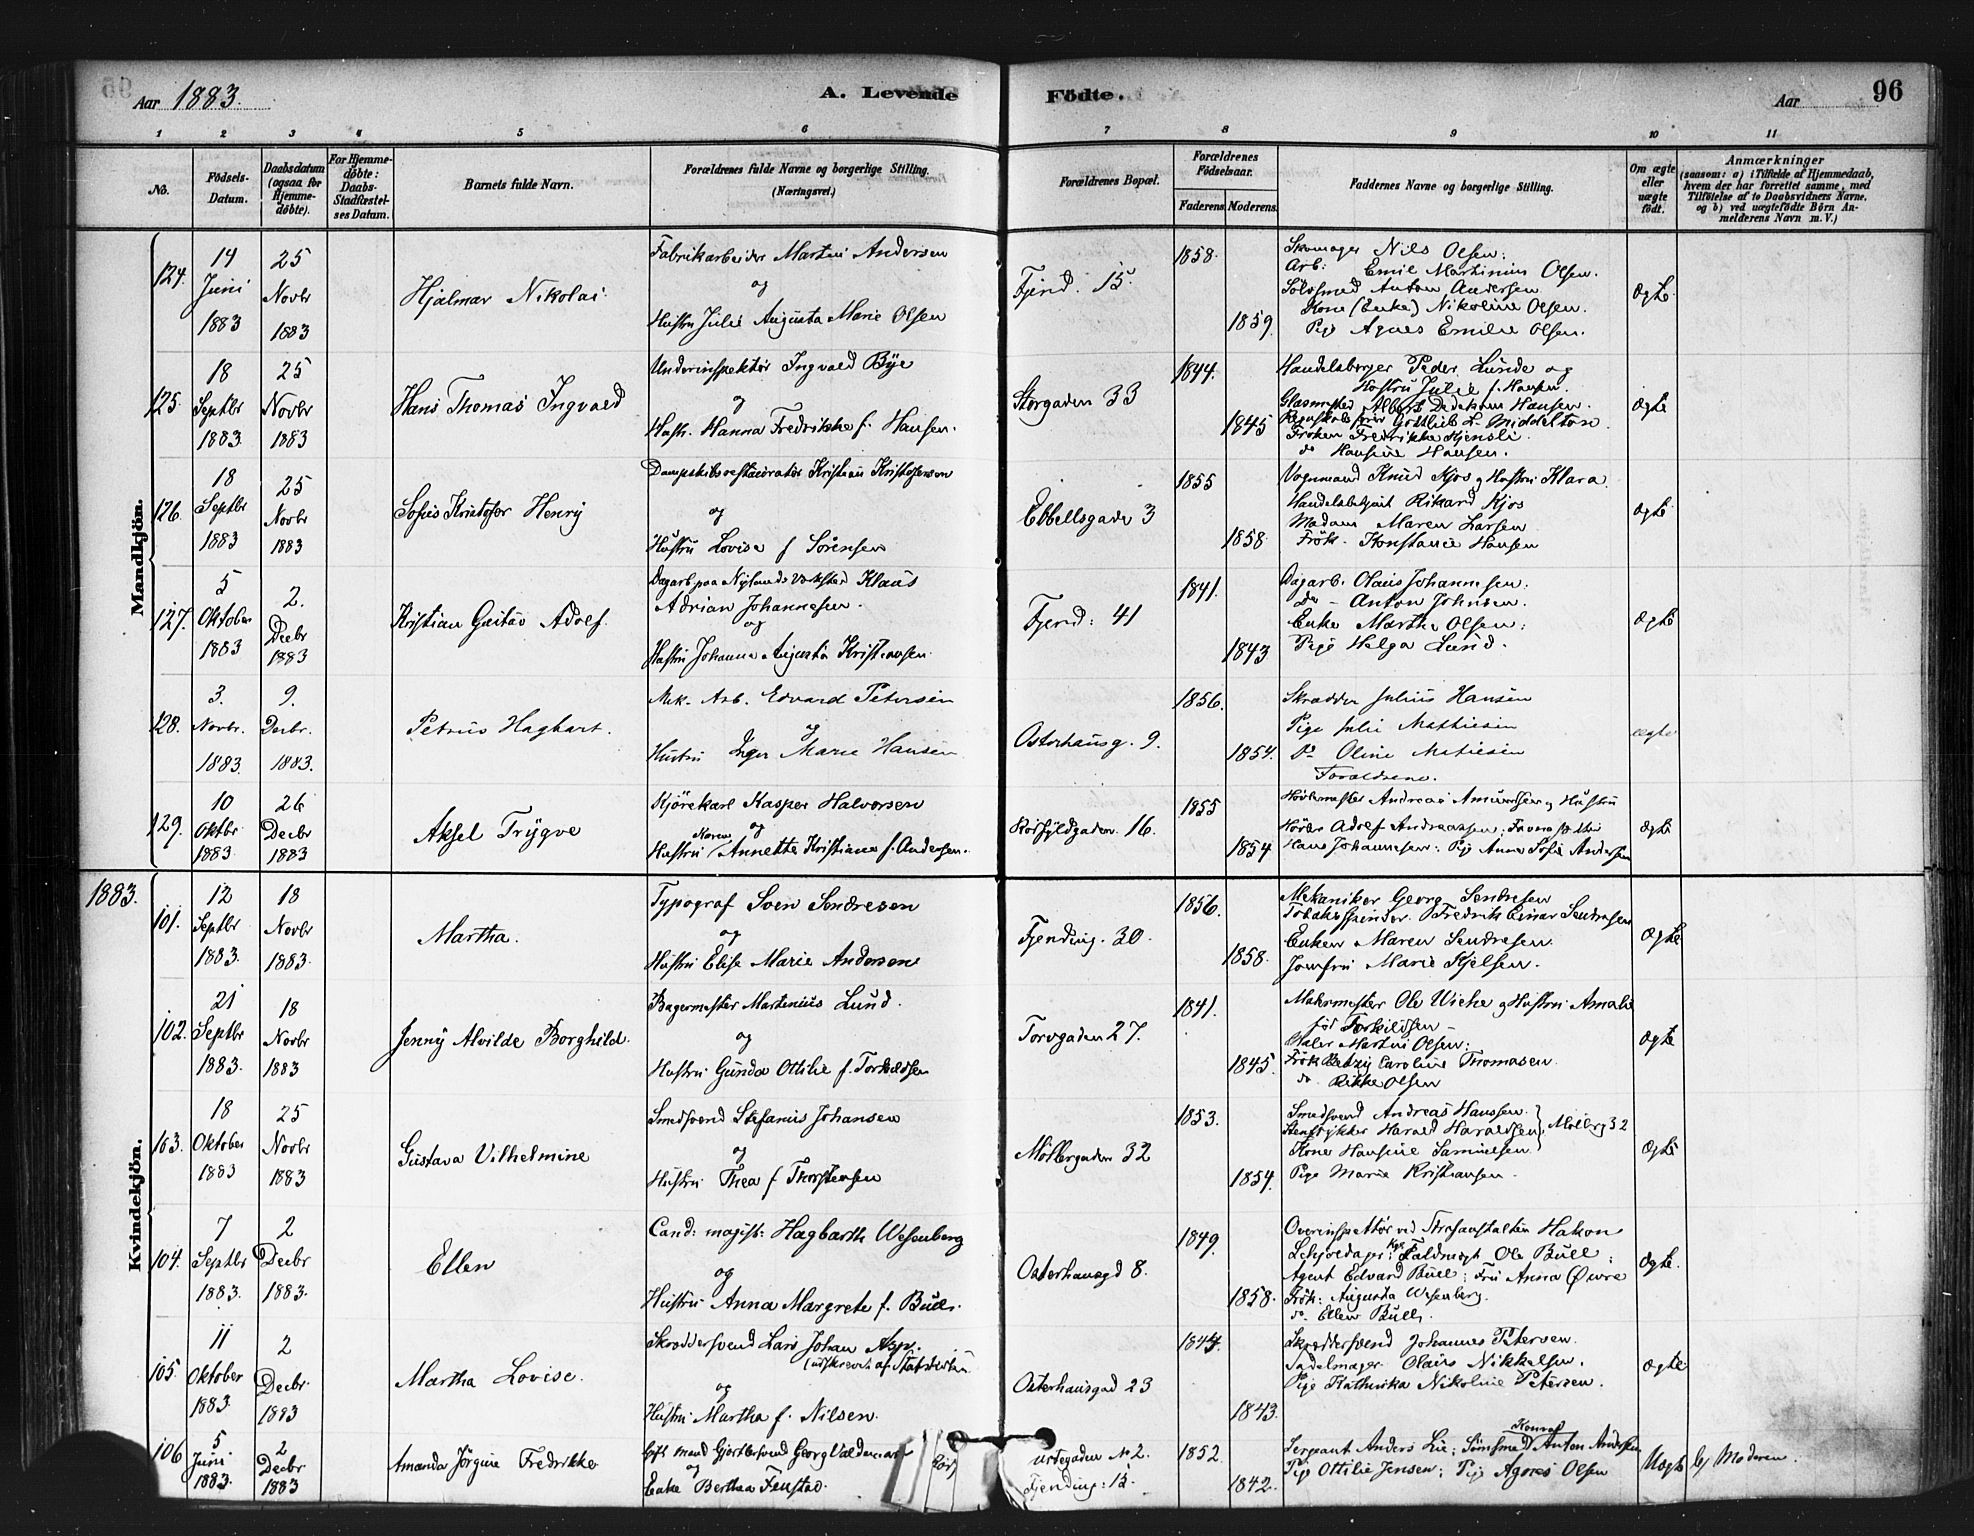 Aar 1883.
A. Levende Födte.
Aar 96
1 2 3 4 5 6 7 8 9 10 11
No.
Födsels-Datum.
Daabsdatum (ogsaa for Hjemme-döbte).
For Hjemme-döbte: Daabs-Stadfæstel-ses Datum.
Barnets fulde Navn.
Forældrenes fulde Navne og borgerlige Stilling.
(Næringsvei.)
Forældrenes Bopæl.
Forældrenes Födselsaar.
Faderens Moderens.
Faddernes Navne og borgerlige Stilling.
Om ægte eller uægte födt.
Anmærkninger
(saasom: a) i Tilfælde af Hjemmedaab,
hvem der har forrettet samme, med
Tilföielse af to Daabsvidners Navne,
og b) ved uægtefödte Börn An-
melderens Navn m. V.)
Mandkjön.
124. 14 Juni 1883
25 Novbr 1883
Hjalmar Nikolai
Fabrikarbeider Martin Andersen
og
Hustru Julie Augusta Marie Olsen
Fjerd. 15.
1858.
1859.
Skomager Nils Olsen.
Arb: Emil Martinius Olsen.
Sölvsmed Anton Andersen
Kone (Enke) Nikoline Olsen.
Pige Agnes Emilie Olsen.
Ægte
125. 18 Septbr 1883.
25 Novbr 1883
Hans Thomas Ingvald
Underinspektör Ingvald Bye
og
Hustr. Hanna Fredrikke f. Hansen.
Storgaden 33
1844.
1845
Handelsborger Peder Lunde og
Hustru Julie f. Hansen.
Glasmester Albert Dedekam Hansen.
Gottlieb L. Middelton
Fröken Fredrikke Hjensli
do Hansine Hansen.
Ægte
126. 18 Septbr 1883
25 Novbr 1883
Sofus Kristofer Henry
Dampskibsrestauratör Kristian Kristofersen
og
Hustru Lovise f Sörensen
Ebbellsgade 3
1855
1858
Vognmand Knud Kjos og Hustru Klara.
Handelsbetjent Rikard Kjos
Madam Maren Larsen
Frök. Konstance Hansen
Ægte
127. 5 Oktober 1883
2. Decbr 1883
Kristian Gustav Adolf.
Dagarb. paa Nylands Værksted Klaus
Adrian Johannesen.
og
Hustru Johanne Augusta Kristiansen.
Fjerd: 41
1841.
1843
Dagarb. Olaus Johannesen.
do - Anton Johnsen.
Enke Marthe Olsen:
Pige Helga Lund.
Ægte
128. 3. Novbr. 1883.
9. Decbr. 1883.
Petrus Hagbart.
Mek. Arb. Edvard Petersen
og
Hustru Inger Marie Hansen
Osterhausg. 9.
1856.
1854.
Skrædder Julius Hansen
Pige Julie Mathiesen
Do Oline Matiesen
Forældrene.
ægte
129. 10 Oktbr 1883.
26 Decbr 1883
Aksel Trygve
Kjörekarl Kasper Halvorsen
og
Hustru Karen Annette Kristiane f. Andersen.
16.
1855
1854
Andreas Amundsen og Hustru
Adolf Andreassen:
Hans Johannesen: Pige Anna Sofie Andersen
Ægte
1883.
Kvindekjön.
101. 12 Septbr 1883.
18 Novbr 1883.
Martha.
Typograf Sven Sendresen
og
Hustru Elise Marie Andersen
Fjerding. 30.
1856.
1858.
Mekaniker Georg Sendresen
Tobaksspinder Fredrik Einar Sendresen
Enken Maren Sendresen.
Jomfru Marie Kjelsen.
Ægte
102. 21 Septbr 1883.
18 Novbr 1883
Jenny Alvilde Borghild.
Bagermester Martinius Lund.
og
Hustru Gunda Ottilie f. Torkildsen
Torvgaden 27.
1841.
1845.
Malermester Ole Wiche og Hustru Amalie
föd Torkildsen
Maler Martin Olsen:
Frök Betzy Caroline Thomasen.
do. Rikke Olsen
Ægte
103. 18 Oktober 1883
25 Novbr 1883
Gustava Vilhelmine
Smedsvend Stefanus Johansen
og
Hustru Thea f Thorstensen
Möllergaden 32
1853.
1854.
Smedsvend Andreas Hanssen.
Stentrykker Harald Haraldsen Möllerg 32
Kone Hansine Samuelsen
Pige Marie Kristiansen.
Ægte
104. 7 Septbr 1883.
2 Decbr 1883.
Ellen
Cand: magist: Hagbarth Wesenberg
og
Hustru Anna Margrete f. Bull.
Osterhausgd 8.
1849.
1858.
Overinspektör ved Strafanstalten Hakon
Ole Bull;
Agent Edvard Bull: Fru Anna Øvre
Frök: Augusta Wesenberg.
do. Ellen Bull.
Ægte.
105. 11 Oktober 1883
2 Decbr. 1883
Martha Lovise.
Skræddersvend Lars Johan Asp.
(udskrevet af Statskirken
og
Hustru Martha f. Nilsen.
Osterhausgad 23
1844.
1843.
Skræddersvend Johannes Petersen.
Sadelmager Olaus Nikkelsen.
Pige Kathinka Nikoline Petersen.
Ægte
106 5 Juni 1883.
2 Decbr 1883
Amanda Jörgine Fredrikke
Gift Mand Gjörtlersvend Georg Valdemar
og
Enke Berthea Fenstad.
No 2.
Fjerding: 13.
1852.
1842.
Sergeant Anders Lie; Konrad Anton Andersen
Pige Ottilie Jensen; Pige Agnes Olsen
Uægte
b) Moderen.